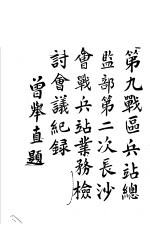 第九戰區兵站總
監部第二次長沙
會戰兵站業務檢
討會議紀錄
曾舉直題